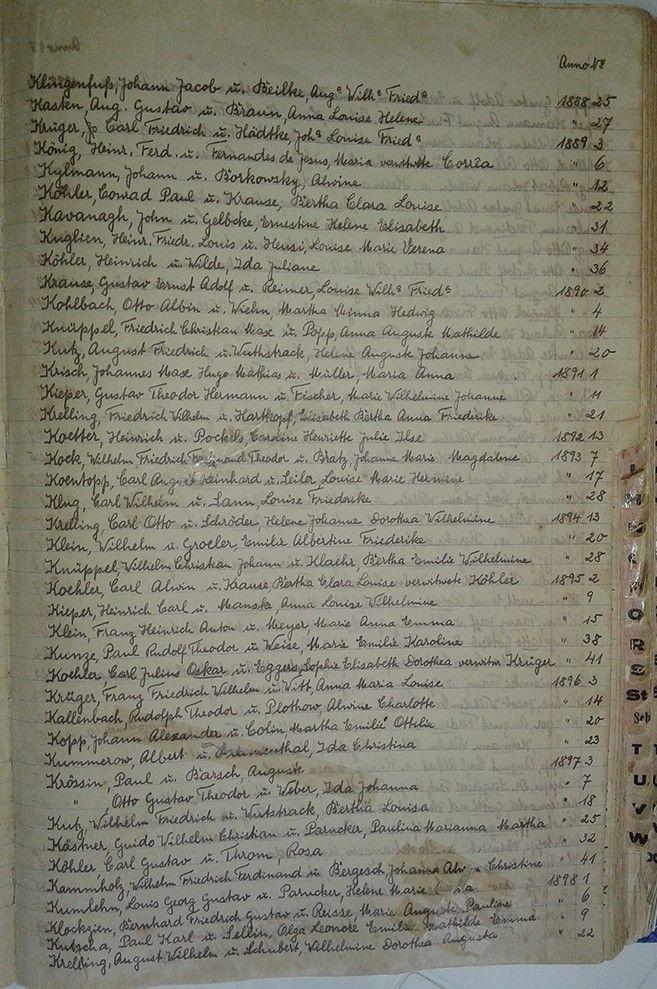 Anno №
Klingenfuß, Johann Jacob u. Beilke, Augᵉ Wilhᵉ Friedᵉ 1888 25
Kasten, Aug. Gustav u. Braun, Anna Louise Helene " 27
Krüger, Carl Friedrich u. Hädtke, Johᵉ Louise Friedᵉ 1889 3
König, Heinr. Ferd. u. Fernandes de Jesus, Maria verwitwete Corrêa " 6
Kylmann, Johann u. Borkowsky, Alwine " 12
Köhler, Conrad Paul u. Krause, Bertha Clara Louise " 22
Kavanagh, John u. Gelbcke, Ernestine Helene Elisabeth " 31
Kuglien, Heinr. Friedr. Louis u. Heusi, Louise Marie Verena " 34
Köhler, Heinrich u. Wilde, Ida Juliane " 36
Krause, Gustav Ernst Adolf u. Reimer, Louise Wilhᵉ Friedᵉ 1890 2
Kohlbach, Otto Albin u. Wiehn, Martha Minna Hedwig " 4
Knüppel, Friedrich Christian Max u. Popp, Anna Auguste Mathilde " 14
Kutz, August Friedrich u. Wuthstrack, Helene Auguste Johanne " 20
Krisch, Johannes Max Hugo Mathias u. Müller, Maria Anna 1891 1
Kieper, Gustav Theodor Hermann u. Fischer, Marie Wilhelmine Johanne " 11
Krelling, Friedrich Wilhelm u. Hartkopf, Elisabeth Bertha Anna Friederike " 21
Koetter, Heinrich u. Pockels, Caroline Henriette Julie Ilse 1892 13
Kock, Wilhelm Friedrich Ferdinand Theodor u. Bratz, Johanne Marie Magdalene 1893 7
Koentopp, Carl August Reinhard u. Leiler, Louise Marie Hermine " 17
Klug, Carl Wilhelm u. Lann, Louise Friederike " 28
Krelling, Carl Otto u. Schröder, Helene Johanne Dorothea Wilhelmine 1894 13
Klein, Wilhelm u. Groeler, Emilie Albertine Friederike " 20
Knüppel, Wilhelm Christian Johann u. Klaehr, Bertha Emilie Wilhelmine " 28
Koehler, Carl Alwin u. Krause, Bertha Clara Louise verwitwete Köhler 1895 2
Kieper, Heinrich Carl u. Manske, Anna Louise Wilhelmine " 9
Klein, Franz Heinrich Anton u. Meyer, Marie Anna Emma " 15
Kunze, Paul Rudolf Theodor u. Weise, Marie Emilie Karoline " 38
Koehler, Carl Julius Oskar u. Eggers, Sophie Elisabeth Dorothea verwitw. Krüger " 41
Krüger, Franz Friedrich Wilhelm u. Witt, Anna Maria Louise 1896 3
Kallenbach, Rudolph Theodor u. Plothow, Alwine Charlotte " 14
Kopp, Johann Alexander u. Colin, Martha Emilie Ottilie " 20
Kummerow, Albert u. Ida Christina " 23
Krössin, Paul u. Barsch, Auguste 1897 3
" , Otto Gustav Theodor u. Weber, Ida Johanna " 7
Kutz, Wilhelm Friedrich u. Wutstrack, Bertha Louisa " 18
Kästner, Guido Wilhelm Christian u. Parucker, Paulina Marianna Martha " 25
Köhler, Carl Gustav u. Throm, Rosa " 32
Kammholz, Wilhelm Friedrich Ferdinand u. Bergesch, Johanna Christine " 41
Kumlehn, Louis Georg Gustav u. Parucker, Helene Marie 1898 1
Klockzien, Bernhard Friedrich Gustav u. Reisse, Marie Auguste Pauline " 6
Kutscha, Paul Karl u. Sellin, Olga Leonore Emilie Mathilde Emma " 9
Krelling, August Wilhelm u. Schubert, Wilhelmine Dorothea Augusta " 22
L
M
N
O
R
S
St
Sch
T
U
V
W